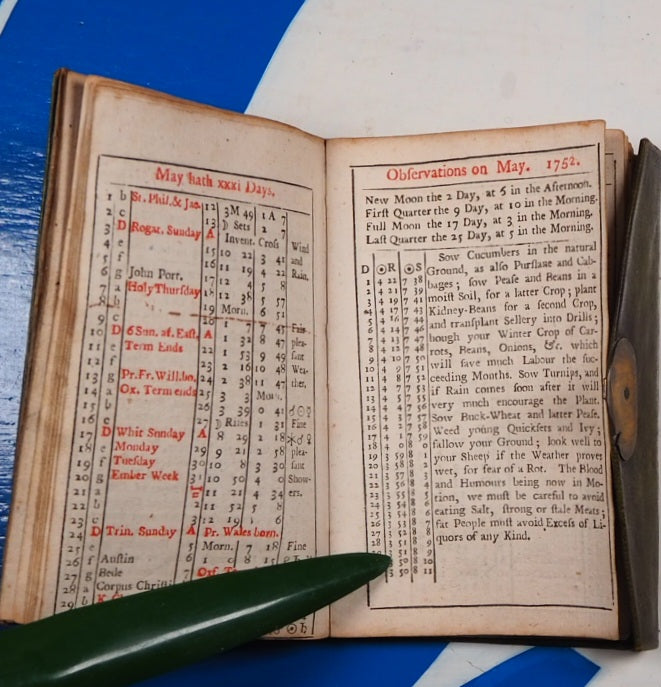 May hath xxxi Days.
1 b St. Phil. & Jac. 12 3M 49 1 A 7
2 c 13 D Sets 2 7
3 D Rogat. Sunday A Invent. Cross Wind
4 e 15 10 22 3 41 and
5 f 16 11 19 4 Rain,
6 g John Port. 17 12 4 5 8
7 a Holy Thursday 18 12 38 5 57
8 b 19 Morn. 6 51
9 c 20 1 7 7 47 Fair
10 D 6 Sun. af. East. A 1 32 8 47 plea-
11 e Term Ends 22 1 53 9 49 sant
12 f 23 2 16 10 48 Wea-
13 g Pr. Fr. Will. bo. 24 2 38 11 47 ther,
14 a Ox. Term ends 25 3 3 Morn.
15 b 26 3 39 0 41
16 c 27 D Rises 1 31 Fine
17 D Whit Sunday A 8 29 2 18
18 e Monday 29 9 21 2 58 plea-
19 f Tuesday 30 10 8 3 30 sant
20 g Ember Week 31 10 50 4 0 Show-
21 a 11 21 4 34 ers.
22 b 2 11 52 5 8
23 c 3 12 19 6
24 D Trin. Sunday A Pr. Wales born.
25 e 5 Morn. 7 18 Fine
26 f Austin 6 1 0 8 15
27 g Bede 7
28 a Corpus Christi
29 b
Observations on May. 1752.
New Moon the 2 Day, at 6 in the Afternoon.
First Quarter the 9 Day, at 10 in the Morning.
Full Moon the 17 Day, at 3 in the Morning.
Last Quarter the 25 Day, at 5 in the Morning.
D ☉R ☉S
1 4 22 7 38
2 4 21 7 39
3 4 19 7 41
4 4 17 7 43
5 4 16 7 44
6 4 14 7 46
7 4 13 7 47
8 4 12 7 48
9 4 10 7 50
10 4 9 7 51
11 4 8 7 52
12 4 7 7 53
13 4 5 7 55
14 4 4 7 56
15 4 3 7 57
16 4 2 7 58
17 4 1 7 59
18 4 0 8 0
19 3 59 8 1
20 3 58 8 2
21 3 57 8 3
22 3 56 8 4
23 3 55 8 5
24 3 54 8 6
25 3 54 8 6
26 3 53 8 7
27 3 52 8 8
28 3 51 8 9
3 51 8 9
3 50 8 10
3 50 8 11
Sow Cucumbers in the natural
Ground, as also Purslane and Cab-
bages; sow Pease and Beans in a
moist Soil, for a latter Crop; plant
Kidney-Beans for a second Crop,
and transplant Sellery into Drills;
hough your Winter Crop of Car-
rots, Beans, Onions, &c. which
will save much Labour the suc-
ceeding Months. Sow Turnips, and
if Rain comes soon after it will
very much encourage the Plant.
Sow Buck-Wheat and latter Pease.
Weed young Quicksets and Ivy;
fallow your Ground; look well to
your Sheep if the Weather proves
wet, for fear of a Rot. The Blood
and Humours being now in Mo-
tion, we must be careful to avoid
eating Salt, strong or stale Meats;
fat People must avoid Excess of Li-
quors of any Kind.